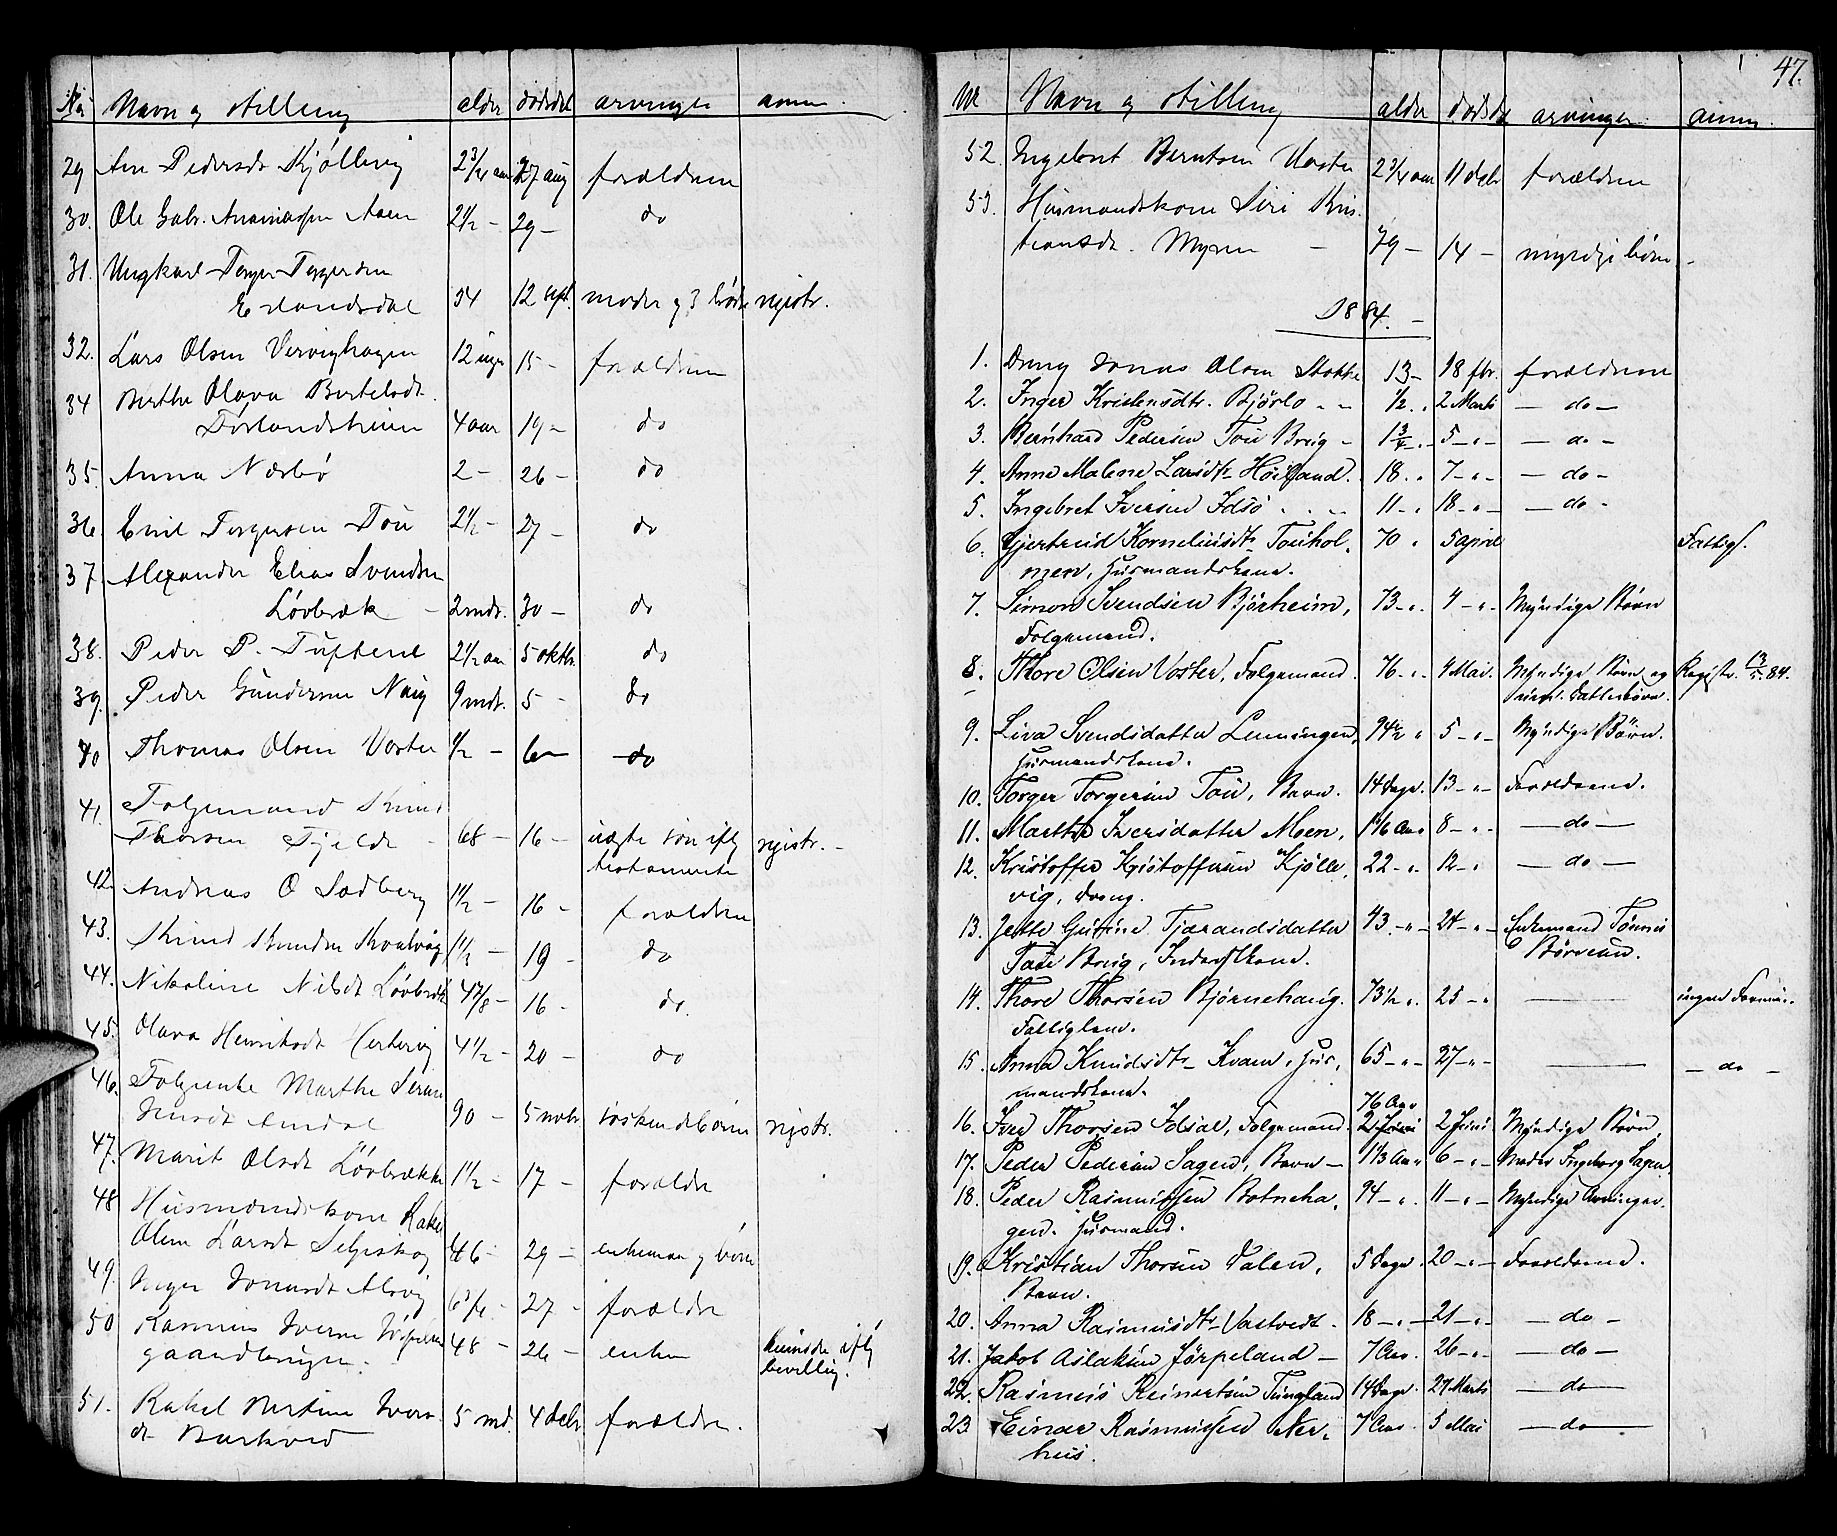 No Navn og stilling alder dødsdat arvinger anm.
29 Ane Pedersdt Kjøllevig 2 3/4 aar 27 aug forældrene
30. Ole Gabr. Ananiassen Aasen 2 1/2 - 29 - do
31. Ungkarl Torger Torgersen
Erlandsdal 54 12 sept. moder og 3 brødre registr.
32. Lars Olsen Vervighagen 12 uger 15 - forældrene
34 Berthe Olava Bertelsdt.
Førlandsheim 4 aar 19 - do
35. Anna Næsbø 2 - 26 - do
36. Emil Torgersen Tou 2 1/2 - 27 - do
37. Alexander Elias Svendsen
Løvbræk - 2 mdr. 30 - do
38. Peder P. Tuftene 2 1/2 aar 5 oktbr. do
39. Peder Gundersen Nag 9 mdr. 5 - do
40 Thomas Olsen Voster 1/2 - 6 - do
41. Folgemand Knud
Thorsen Fjelde - 68 - 16 - uægte søn iflg registr. -
testamente
42. Andreas O Sedberg 1 1/2 - 16 - forældrene
43. Knud Knudsen Kvalvåg 1 1/2 - 19 - do
44. Nikoline Nilsdt Løvbræk 4 7/8 - 16 - do.
45. Olava Henriksdt Hertervig 4 1/2 - 20 - do
46. Folgeenke Marthe Serine
Knudsdt Amdal 90 - 5 novbr. søskendebørn registr.
47. Marit Olsdt Løvbrække 1 1/2 - 17 - forældre
48 Husmandskone Rakel
Oline Larsdt Selgiskog 46 - 29 - enkeman og børn
49. Inger Jonasdt Alsvig 6 3/4 - 27 - forældre
50 Rasmus Iversen Jøssang
gaardbruger. 48 - 26 - enken uskiftet iflg
bevilling.
51. Rakel Bertine Ivers
dt Barkved 5 md. 4 debr forældre.

47.
No Navn og stilling alder dødsdat arvinger anm.
52. Ingebret Berntsen Voster 2 3/4 aar 11 debr forældrene
53. Husmandskone Siri Kris
tiansdt. Myren - 79 - 14 - myndige børn -
1884. -
1. Dreng Jonas Olsen Stokke 13 - 18 fbr. forældrene
2. Inger Kristensdtr. Bjørlo - - 1/2 . 2 Marts - do -
3. Bernhard Pedersen Tou Brug - 1 3/4 . 5 - " - - do -
4. Anne Malene Larsdtr Høiland. 18 . 7 - " - - do -
5. Ingebret Iversen Idsø . . - 11 - . 18 - " - - do -
6. Gjertrud Korneliusdtr Touhol-
men, Husmandskone. 70 . 5 april Fattigl.
7. Simon Svendsen Bjørheim,
Folgemand. 73 - " . 4 - " - Myndige Børn
8. Thore Olsen Voster, Folgemand. 76 - " . 4 Mai. Myndige Børn og Registr. 13/5 84.
umynd. Datterbørn.
9. Liva Svendsdatter Lunningen,
Husmandskone. 74 1/2 " 5 - " - Myndige Børn.
10. Torger Torgersen Tou, Barn. 14 Dage. 13 - " - Forældrene.
11. Marthe Iversdatter Moen, 1 1/6 Aar 8 - " - - do -
12. Kristoffer Kristoffersen Kjølle-
vig, Dreng. 22 - " . 12 - " - do -
13. Jette Gurine Tjarandsdatter 43. - " - 24 - " - Enkemand Tønnes
Tou Brug, Inderstkone. Børsem.
14. Thore Thorsen Bjørnehaug. 73 1/2 ". 25 - " - ingen Formue.
Fattiglem.
15. Anna Knudsdtr Kvam, Hus- 65 - " - 27 - " - - do -
mandskone.
16. Iver Thorsen Idsal, Folgemand. 76 Aar 2 Juni Myndige Børn.
17. Peder Pedersen Sagen, Barn - 1 1/3 Aar 6 - " - Moder Ingeborg Sagen.
18. Peder Rasmussen Botneha-
gen. Husmand. 74 - " . 11 - " - Myndige Arvinger.
19. Kristian Thorsen Dalen, 5 Dage. 20 - " - Forældrene.
Barn.
20. Anna Rasmusdtr Vastvedt. 18 - " - 21 - " - - do -
21. Jakob Aslaksen Jørpeland - 7 Aar. 26 - " - - do -
22. Rasmus Reinertsen Tungland 14 Dage. 27 Marts - do -
23 Einar Rasmussen Ner-
hus. 7 Aar. 5 Mai - do -